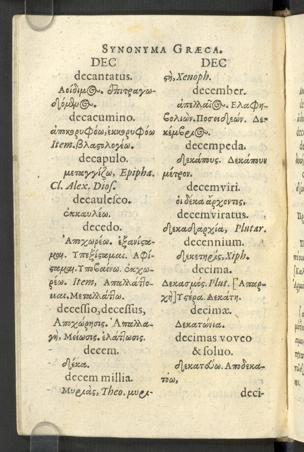 SYNONYMA GRÆCA.
DEC
decantatus.
Ἀοίδιμος.
decacumino.
ἀποκορυφόω, ἐκκορυφόω
Item, βλαστολογέω.
decapulo.
μεταγγίζω, Epipha.
Cl. Alex. Diosc.
decaulesco.
ἐκκαυλέω.
decedo.
Ἀποχωρέω. ἐξανίστα-
μαι. Ὑπεξίσταμαι. Ἀφί-
σταμαι. Ὑποβαίνω. ἐκχω-
ρέω. Item, Ἀπαλλάττο-
μαι. Μεταλλάττω.
decessio, decessus,
Ἀποχώρησις. Ἀπαλλα-
γὴ, Μείωσις. ἐλάττωσις.
decem.
δέκα.
decem millia.
Μυριὰς, Theo. μυρι-
DEC
Xenoph.
december.
Ἐλαφη-
βολιών. Ποσειδεών. Δε-
κέμβριος.
decempeda.
δεκάπους. Δεκάπουν
μέτρον.
decemviri.
οἱ δέκα ἄρχοντες.
decemviratus.
δεκαδαρχία, Plutar.
decennium.
δεκετηρὶς, Xiph.
decima.
Δεκασμός. Plut. [Ἀπαρ-
χὴ] Ὕστερα. Δεκάτη.
decimæ.
Δεκατώνια.
decimas voveo
& soluo.
δεκατόω. Ἀποδεκα-
τόω,
deci-